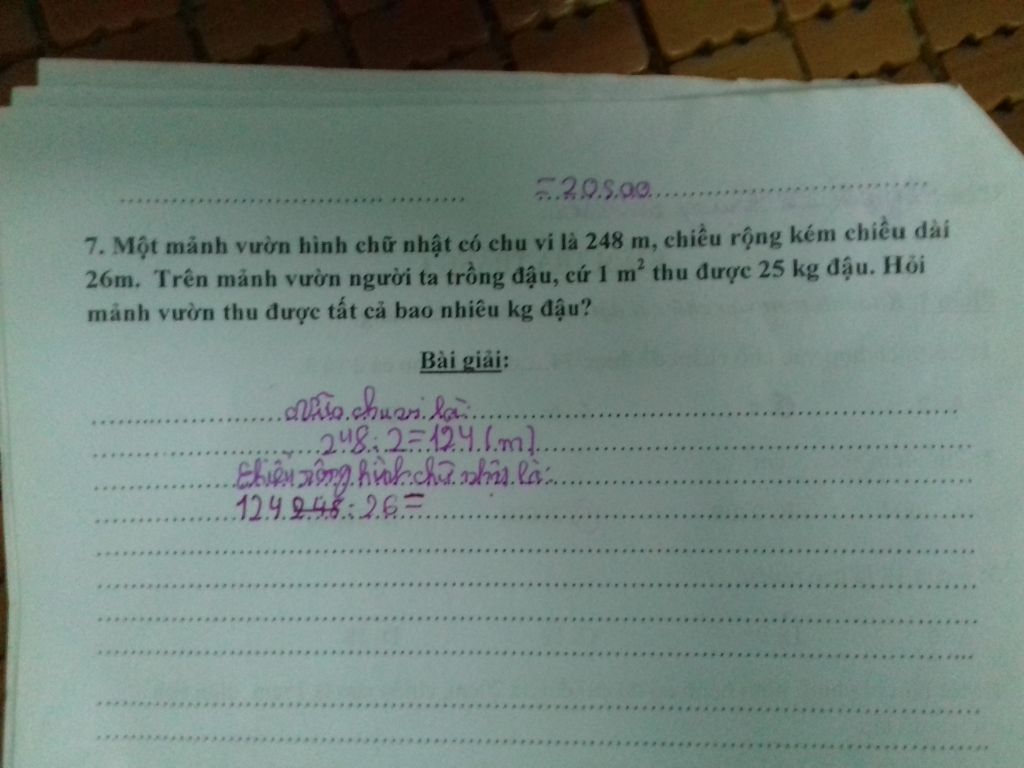 = 20500
7. Một mảnh vườn hình chữ nhật có chu vi là 248 m, chiều rộng kém chiều dài
26m. Trên mảnh vườn người ta trồng đậu, cứ 1 m² thu được 25 kg đậu. Hỏi
mảnh vườn thu được tất cả bao nhiêu kg đậu?
Bài giải:
Nửa chu vi là:
248 : 2 = 124 (m)
Chiều rộng hình chữ nhật là:
124 248 : 26 =